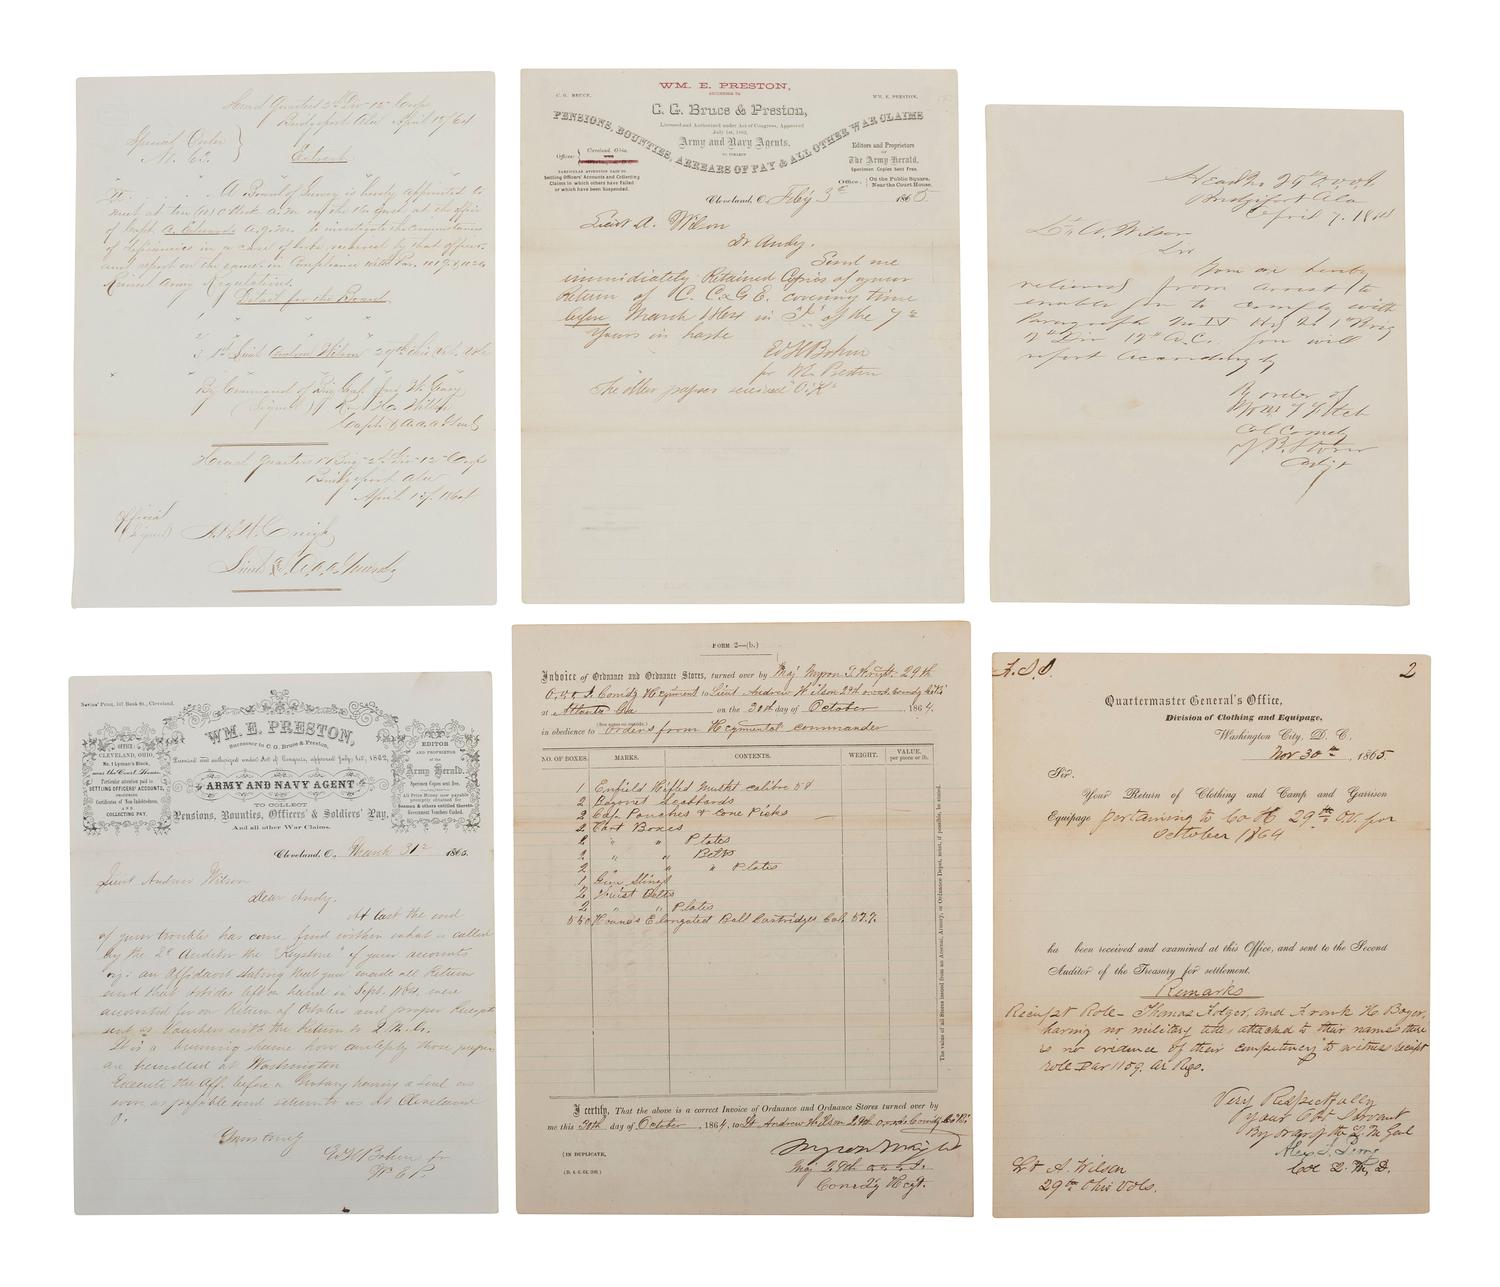 Head Quarters 2d Div 12th Corps
Bridgeport Ala April 15/64
Special Order
Extract
A Board of Survey is hereby appointed to
meet at ten (10) o'clock A.M. on the 16 inst at the office
of Capt. A. Edwards A.Q.M. to investigate the circumstances
of deficiencies in a case of boots received by that officer
and report on the same in Compliance with Par. 1019 & 1020
Revised Army Regulations.
Detail for the Board
1 " " "
2
3 1st Lieut Andrew Wilson 29th Ohio Vet. Vols
By Command of Brig Genl Jno W. Geary
(Signed)
Capt & A.A.A. Genl
Head Quarters 1st Brig 2d Div 12th Corps
Bridgeport Ala
April 15/ 1864
Official
(Signed)
Lieut & A.A.A. Genl
WM. E. PRESTON,
SUCCESSOR TO
C. G. BRUCE. WM. E. PRESTON.
C. G. Bruce & Preston,
Licensed and Authorized under Act of Congress, Approved
July 1st, 1862,
Army and Navy Agents,
TO COLLECT
PENSIONS, BOUNTIES, ARREARS OF PAY & ALL OTHER WAR CLAIMS
Offices: Cleveland, Ohio.
PARTICULAR ATTENTION PAID TO
Settling Officers' Accounts and Collecting
Claims in which others have Failed
or which have been Suspended.
Editors and Proprietors
OF
The Army Herald.
Specimen Copies Sent Free.
Office: On the Public Square,
Near the Court House.
Cleveland, O. Feb'y 3d 1865.
Lieut A. Wilson
Dr Andy.
Send me
immidiately Retained Copies of your
Return of C. C. & G. E. covering time
before March 1864 in "F" of the 7th
Yours in haste
Ed H Bohm
for Wm Preston
The other papers received "O.K"
Headqrs 29th O.V.V.I.
Bridgeport Ala
April 7. 1864
Lt. A. Wilson
Sir
You are hereby
relieved from arrest to
enable you to comply with
Paragraph No IV Hd Qrs 1st Brig
2nd Div 12th A.C. you will
report accordingly
By order of
Wm T Fitch
Col Comdg
J. B. Storer
Adjt
Nevins' Print, 107 Bank St., Cleveland.
WM. E. PRESTON,
Successor to C. G. Bruce & Preston,
Licensed and authorized under Act of Congress, approved July 1st, 1862,
ARMY AND NAVY AGENT
TO COLLECT
Pensions, Bounties, Officers' & Soldiers' Pay,
And all other War Claims.
OFFICE:
CLEVELAND, OHIO,
No. 1 Lyman's Block,
near the Court House.
Particular attention paid to
SETTLING OFFICERS' ACCOUNTS,
PROCURING
Certificates of Non-Indebtedness,
AND
COLLECTING PAY.
EDITOR
AND PROPRIETOR
OF THE
Army Herald.
Specimen Copies sent free.
All Prize Money now payable
promptly obtained for
Seamen & others entitled thereto
Government Vouchers Cashed.
Cleveland, O., March 31st 1865.
Lieut Andrew Wilson
Dear Andy.
At last the end
of your troubles has come find within what is called
by the 2d Auditor the "Keystone" of your accounts
viz: an Affidavit stating that you made all Return
and that Articles left on hand in Sept. 1864, were
accounted for on Return of October and proper Receipts
sent as Vouchers with the Return to Q. M. G.
It is a burning shame how carelessly those papers
are handled at Washington
Execute the Aff. before a Notary having a Seal as
soon as possible and return to us at Cleveland
O.
Yours truly
Ed H Bohm for
W. E. P.
FORM 2—(b.)
Invoice of Ordnance and Ordnance Stores, turned over by Maj Myron T. Wright 29th
O.V.V.I. Comdg Regiment to Lieut Andrew Wilson 29th O.V.V.I. Comdg Co "H"
at Atlanta Ga on the 30th day of October, 1864,
(See agents on outside.)
in obedience to orders from Regimental commander
NO. OF BOXES. MARKS. CONTENTS. WEIGHT. VALUE, per piece or lb.
1 Enfield Rifled Musket calibre 58
2 Bayonet Scabbards
2 Cap Pouches & Cone Picks
2 Cart Boxes
2 " " Plates
2 " " Belts
2 " " " Plates
1 Gun Slings
2 Waist Belts
2 " " Plates
550 Rounds Elongated Ball Cartridges Cal. 57.7.
The value of all Stores issued from an Arsenal, Armory, or Ordnance Depot, must, if possible, be stated.
I certify, That the above is a correct Invoice of Ordnance and Ordnance Stores turned over by
me this 30th day of October, 1864, to Lt Andrew Wilson 29th O.V.V.I. Comdg Co "H"
(IN DUPLICATE,
Myron T Wright
Maj 29th O.V.V.I.
Comdg Regt.
A.S.O. 2
Quartermaster General's Office,
Division of Clothing and Equipage,
Washington City, D. C.,
Nov 30th, 1865
Sir.
Your Return of Clothing and Camp and Garrison
Equipage pertaining to Co H 29th O.V. for
October 1864
ha been received and examined at this Office, and sent to the Second
Auditor of the Treasury for settlement.
Remarks
Receipt Role – Thomas Folger, and Frank H. Boyer,
having no military title attached to their names there
is no evidence of their competency to witness receipt
role Par 1159. Ar Regs.
Very Respectfully
Your Obt Servant
By order of the Q M Genl
Alex. J. Perry
Col Q. M. D.
Lt A. Wilson
29th Ohio Vols.